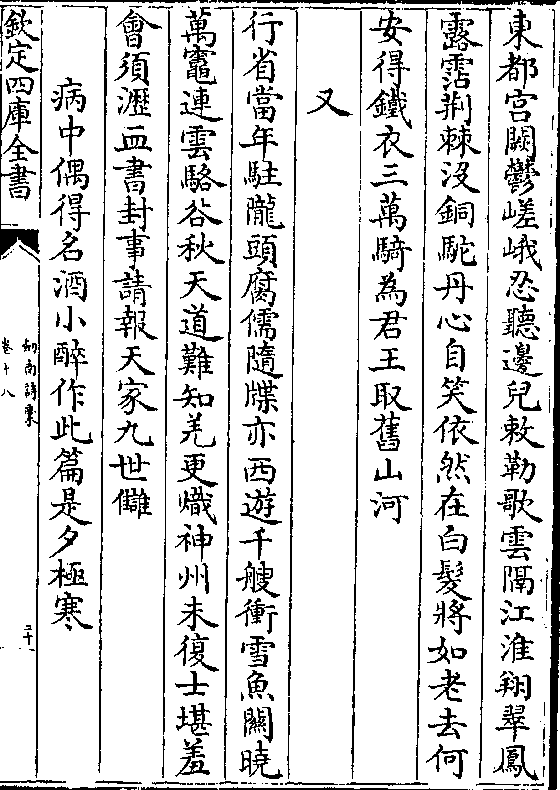 東都宫闕鬱嵯峨忍聽邊兒敕勒歌雲隔江淮翔翠鳳
露霑荆棘沒銅駝丹心自笑依然在白髮將如老去何
安得鐵衣三萬騎為君王取舊山河
又
行省當年駐隴頭腐儒隨牒亦西遊千艘衝雪魚關曉
萬竈連雲駱谷秋天道難知羌更熾神州未復士堪羞
會須瀝血書封事請報天家九世讎
病中偶得名酒小醉作此篇是夕極寒
欽定四庫全書
劍南詩稾
卷十八
二十